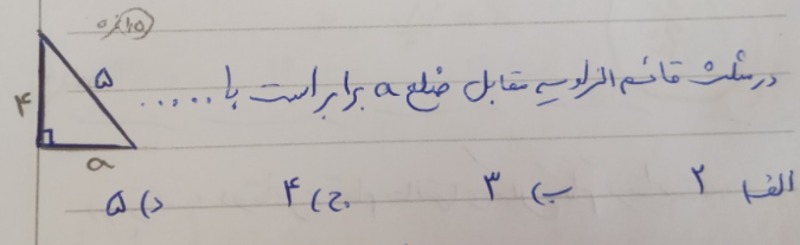 ۰/۲۵
در مثلث قائم الزاویه مقابل ضلع a برابر است با .....
۵
۴
a
الف) ۲ ب) ۳ ج) ۴ د) ۵